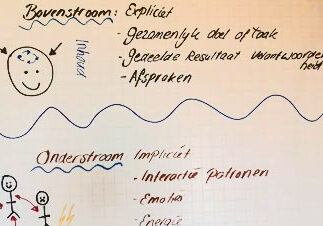 Bovenstroom: Expliciet
- Gezamenlyk doel of taak
- gedeelde Resultaat verantwoorde
heid
- Afspraken
Inhoud
Onderstroom Impliciet
- Interactie patronen
- Emoties
- Energie